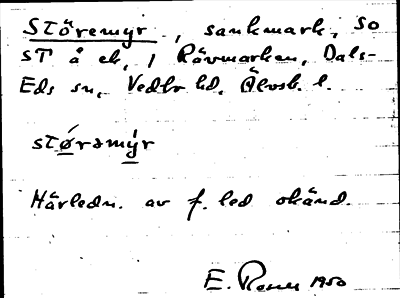 Störemyr, sankmark, SO
ST å ek, i Rävmarken, Dals-
Eds sn, Vedbo hd, Älvsb. l.
størəmýr
Härledn. av f. led okänd.
E. Rosen 1950